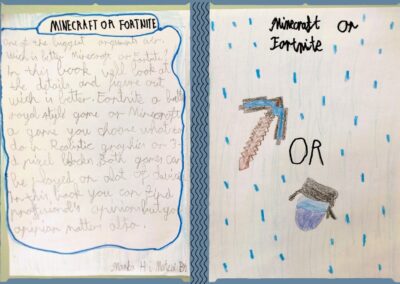 MINECRAFT OR FORTNITE
the biggest arguments
which is better Minecraft or
In this book will look at
the details and figure out
wich is better. Fortnite a
royal style game or Minecraft
a game you choose what
do in. Realistic graphics or
pixel blocks. Both games can
be played on alot of
In this book you can find
opinion but your
opinion matter also.
Minecraft or
Fortnite
OR